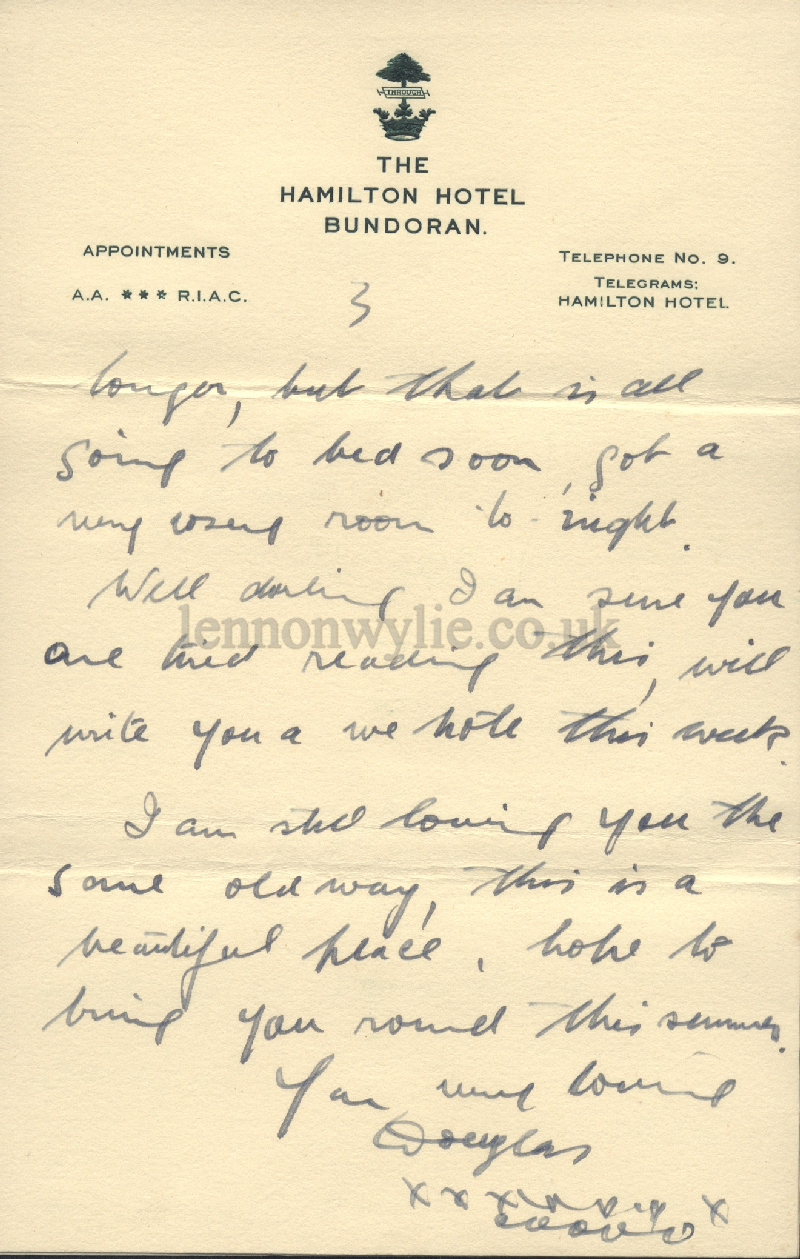 THROUGH
THE
HAMILTON HOTEL
BUNDORAN.
APPOINTMENTS
A.A. *** R.I.A.C.
TELEPHONE No. 9.
TELEGRAMS:
HAMILTON HOTEL.
3
longer, but that is all
going to bed soon, got a
very room to-night.
Well darling I am sure you
are tired reading this, will
write you a wee note this week.
I am still loving you the
same old way, this is a
beautiful place, hope to
bring you round this summer.
Your very loving
Douglas
x x x x x x x x
lennonwylie.co.uk